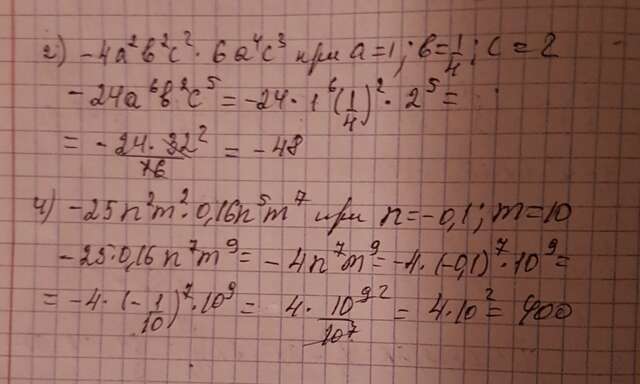 2) -4a²b²c²·6a⁴c³ при a=1; b=1/4; c=2
-24a⁶b²c⁵ = -24·1⁶(1/4)²·2⁵ =
= -24·32²/16 = -48
4) -25n²m²·0,16n⁵m⁷ при n=-0,1; m=10
-25·0,16n⁷m⁹ = -4n⁷m⁹ = -4·(-0,1)⁷·10⁹ =
= -4·(-1/10)⁷·10⁹ = 4·10⁹ ²/10⁷ = 4·10² = 400